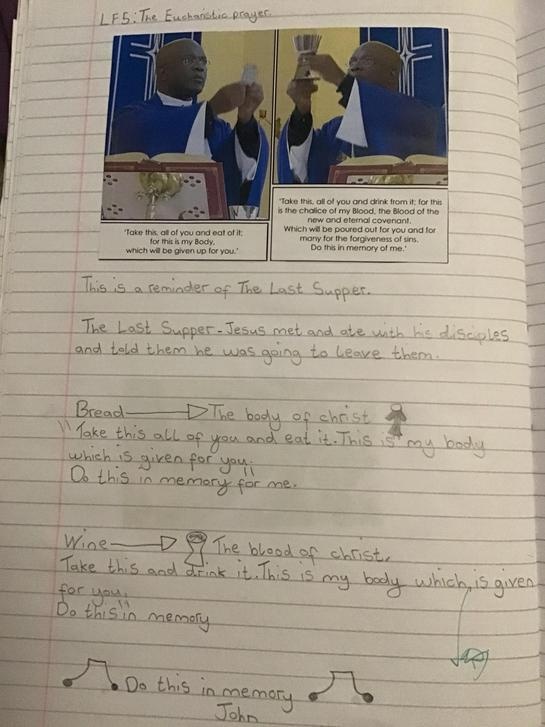 LF5: The Eucharistic prayer.
'Take this, all of you and eat of it;
for this is my Body,
which will be given up for you.'
'Take this, all of you and drink from it; for this
is the chalice of my Blood, the Blood of the
new and eternal covenant.
Which will be poured out for you and for
many for the forgiveness of sins.
Do this in memory of me.'
This is a reminder of The Last Supper.
The Last Supper - Jesus met and ate with his disciples
and told them he was going to leave them.
Bread → The body of christ
"Take this all of you and eat it. This is my body
which is given for you.
Do this in memory for me."
Wine → The blood of christ.
Take this and drink it. This is my body which, is given
for you.
Do this" in memory
Do this in memory
John